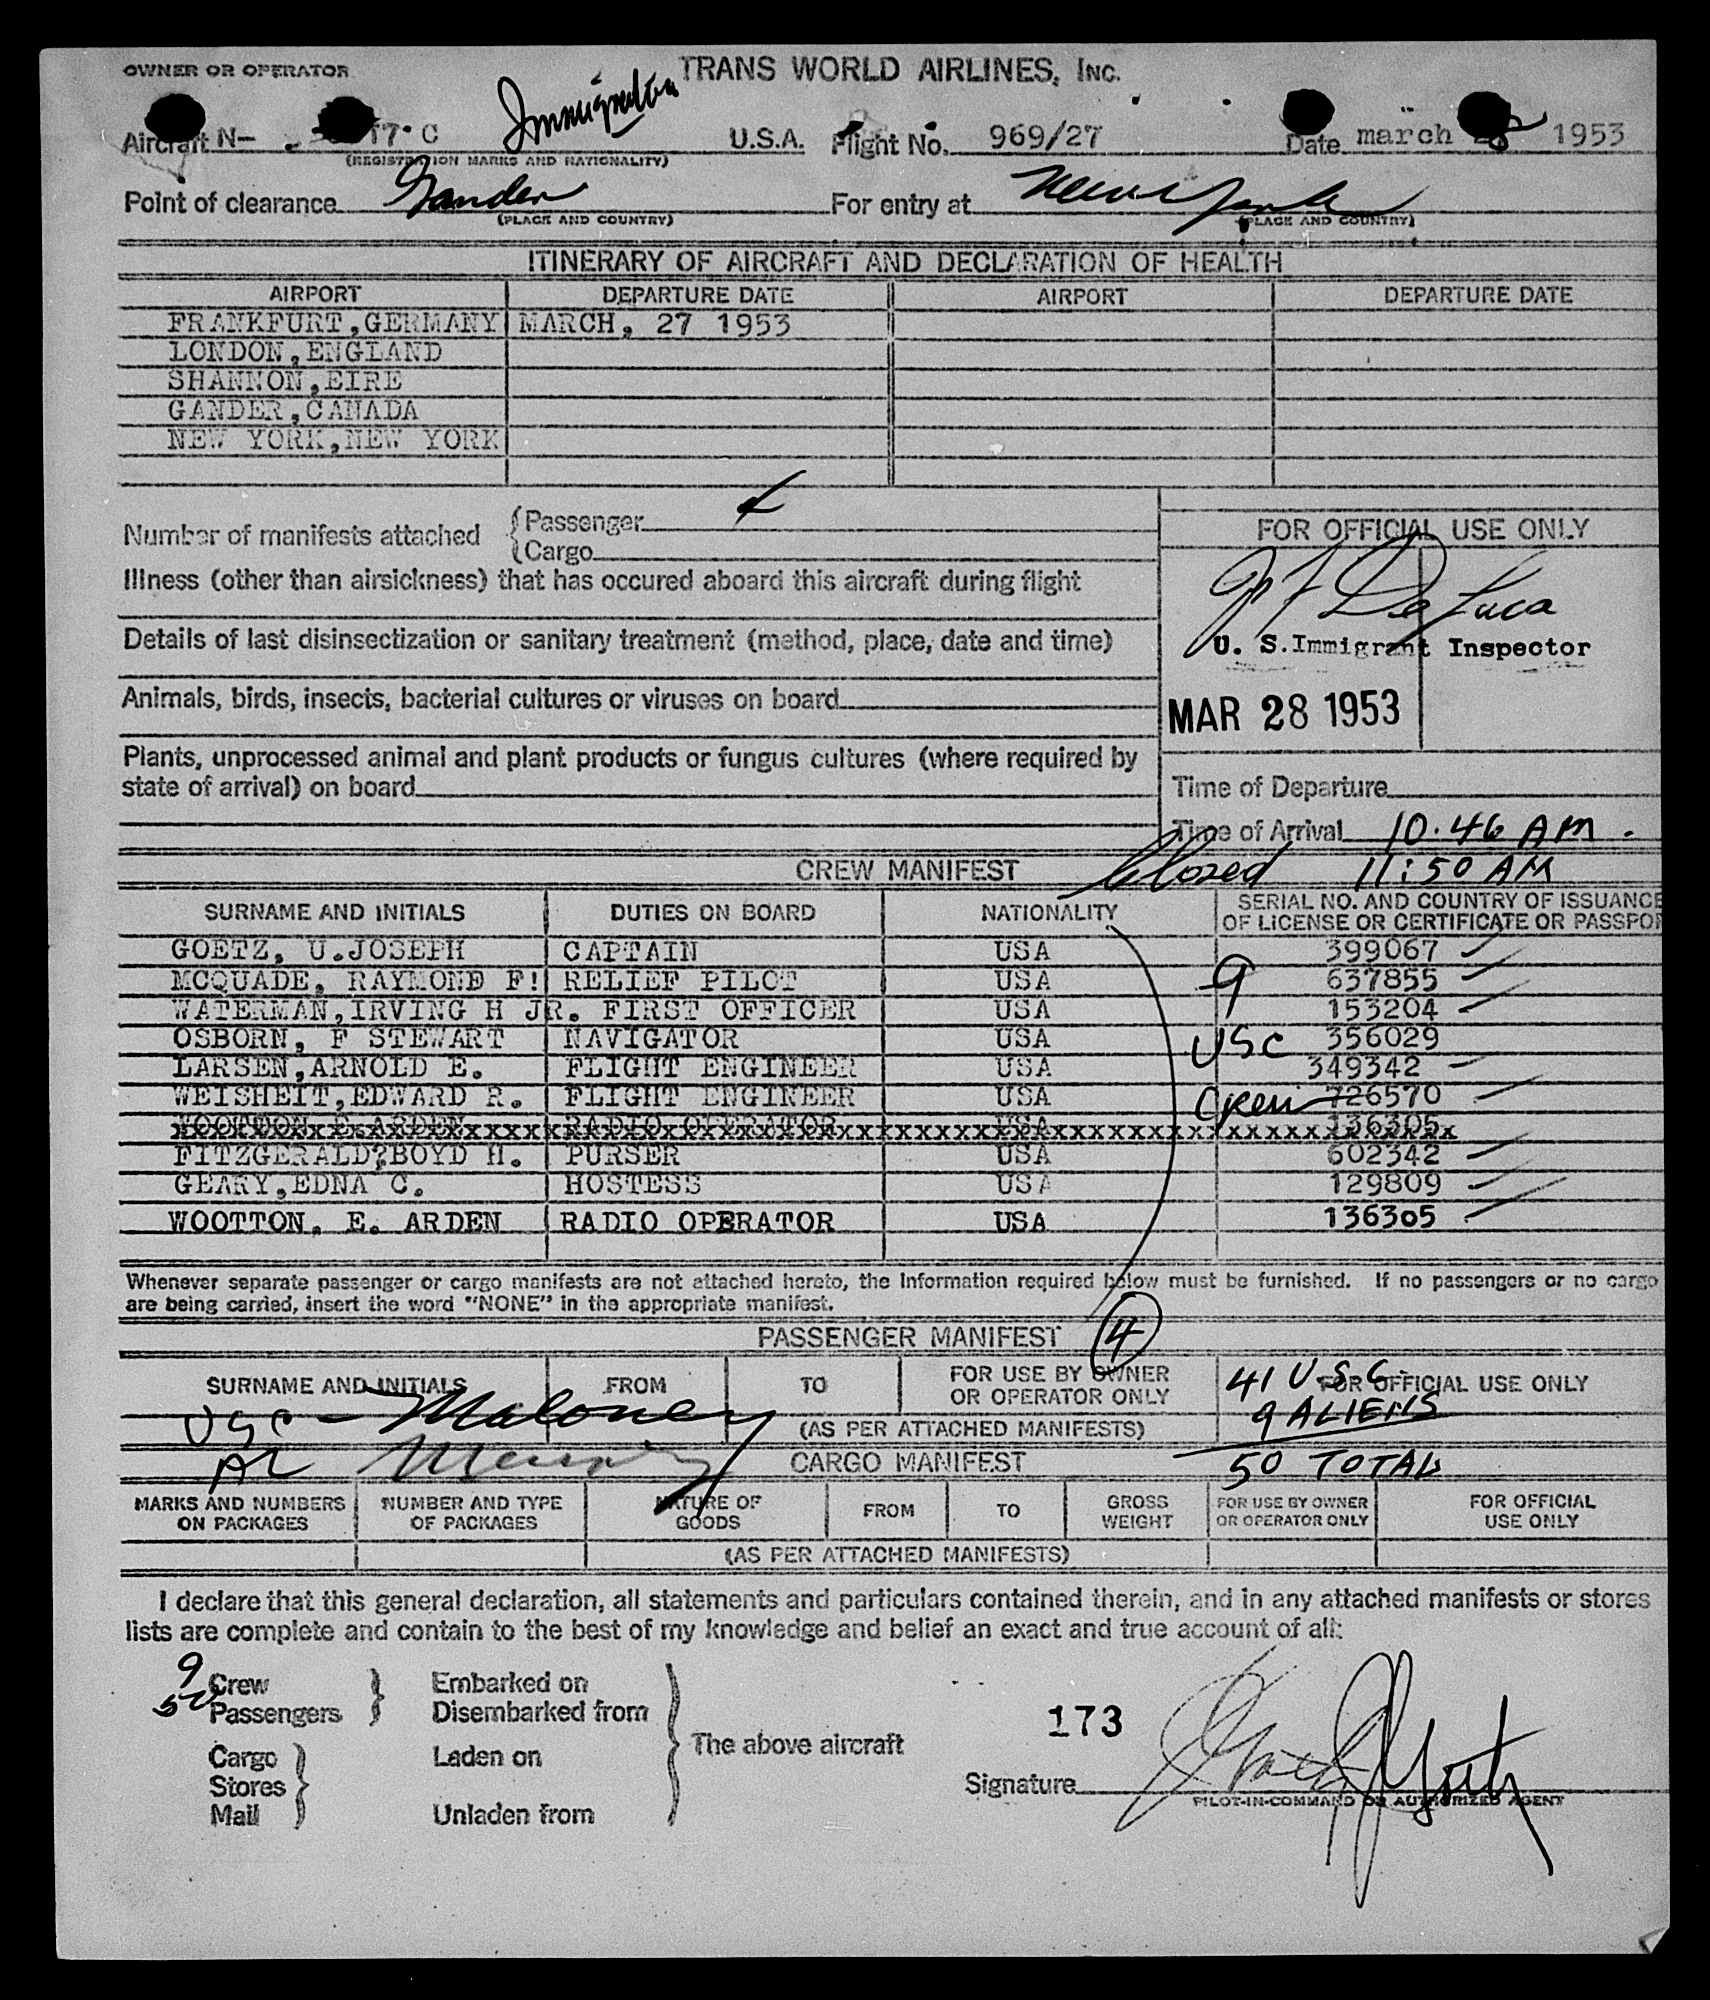 OWNER OR OPERATOR TRANS WORLD AIRLINES, INC.
Immigration
Aircraft N- 17 C U.S.A. Flight No. 969/27 Date march 28 1953
(REGISTRATION MARKS AND NATIONALITY)
Point of clearance Gander For entry at New York
(PLACE AND COUNTRY) (PLACE AND COUNTRY)
ITINERARY OF AIRCRAFT AND DECLARATION OF HEALTH
AIRPORT DEPARTURE DATE AIRPORT DEPARTURE DATE
FRANKFURT,GERMANY MARCH, 27 1953
LONDON,ENGLAND
SHANNON,EIRE
GANDER,CANADA
NEW YORK,NEW YORK
Number of manifests attached { Passenger
{ Cargo
Illness (other than airsickness) that has occured aboard this aircraft during flight
Details of last disinsectization or sanitary treatment (method, place, date and time)
Animals, birds, insects, bacterial cultures or viruses on board
Plants, unprocessed animal and plant products or fungus cultures (where required by
state of arrival) on board
FOR OFFICIAL USE ONLY
De Luca
U. S. Immigrant Inspector
MAR 28 1953
Time of Departure
Time of Arrival 10.46 AM.
Closed 11:50 AM
CREW MANIFEST
SURNAME AND INITIALS DUTIES ON BOARD NATIONALITY SERIAL NO. AND COUNTRY OF ISSUANCE
OF LICENSE OR CERTIFICATE OR PASSPOR
GOETZ, U.JOSEPH CAPTAIN USA 399067
MCQUADE, RAYMOND F! RELIEF PILOT USA 9 637855
WATERMAN,IRVING H JR. FIRST OFFICER USA 153204
OSBORN, F STEWART NAVIGATOR USA USC 356029
LARSEN,ARNOLD E. FLIGHT ENGINEER USA 349342
WEISHEIT,EDWARD R. FLIGHT ENGINEER USA Crew 726570
WOOTTON E.ARDEN RADIO OPERATOR USA 136305
FITZGERALD?BOYD H. PURSER USA 602342
GEARY,EDNA C. HOSTESS USA 129809
WOOTTON, E. ARDEN RADIO OPERATOR USA 136305
Whenever separate passenger or cargo manifests are not attached hereto, the information required below must be furnished. If no passengers or no cargo
are being carried, insert the word "NONE" in the appropriate manifest.
PASSENGER MANIFEST 4
SURNAME AND INITIALS FROM TO FOR USE BY OWNER OR OPERATOR ONLY FOR OFFICIAL USE ONLY
41 U.S.C.
USC - Maloney (AS PER ATTACHED MANIFESTS) 9 ALIENS
AL CARGO MANIFEST 50 TOTAL
MARKS AND NUMBERS ON PACKAGES NUMBER AND TYPE OF PACKAGES NATURE OF GOODS FROM TO GROSS WEIGHT FOR USE BY OWNER OR OPERATOR ONLY FOR OFFICIAL USE ONLY
(AS PER ATTACHED MANIFESTS)
I declare that this general declaration, all statements and particulars contained therein, and in any attached manifests or stores
lists are complete and contain to the best of my knowledge and belief an exact and true account of all:
9 Crew } Embarked on
50 Passengers } Disembarked from
The above aircraft
Cargo } Laden on
Stores
Mail } Unladen from
173
Signature
PILOT-IN-COMMAND OR AUTHORIZED AGENT